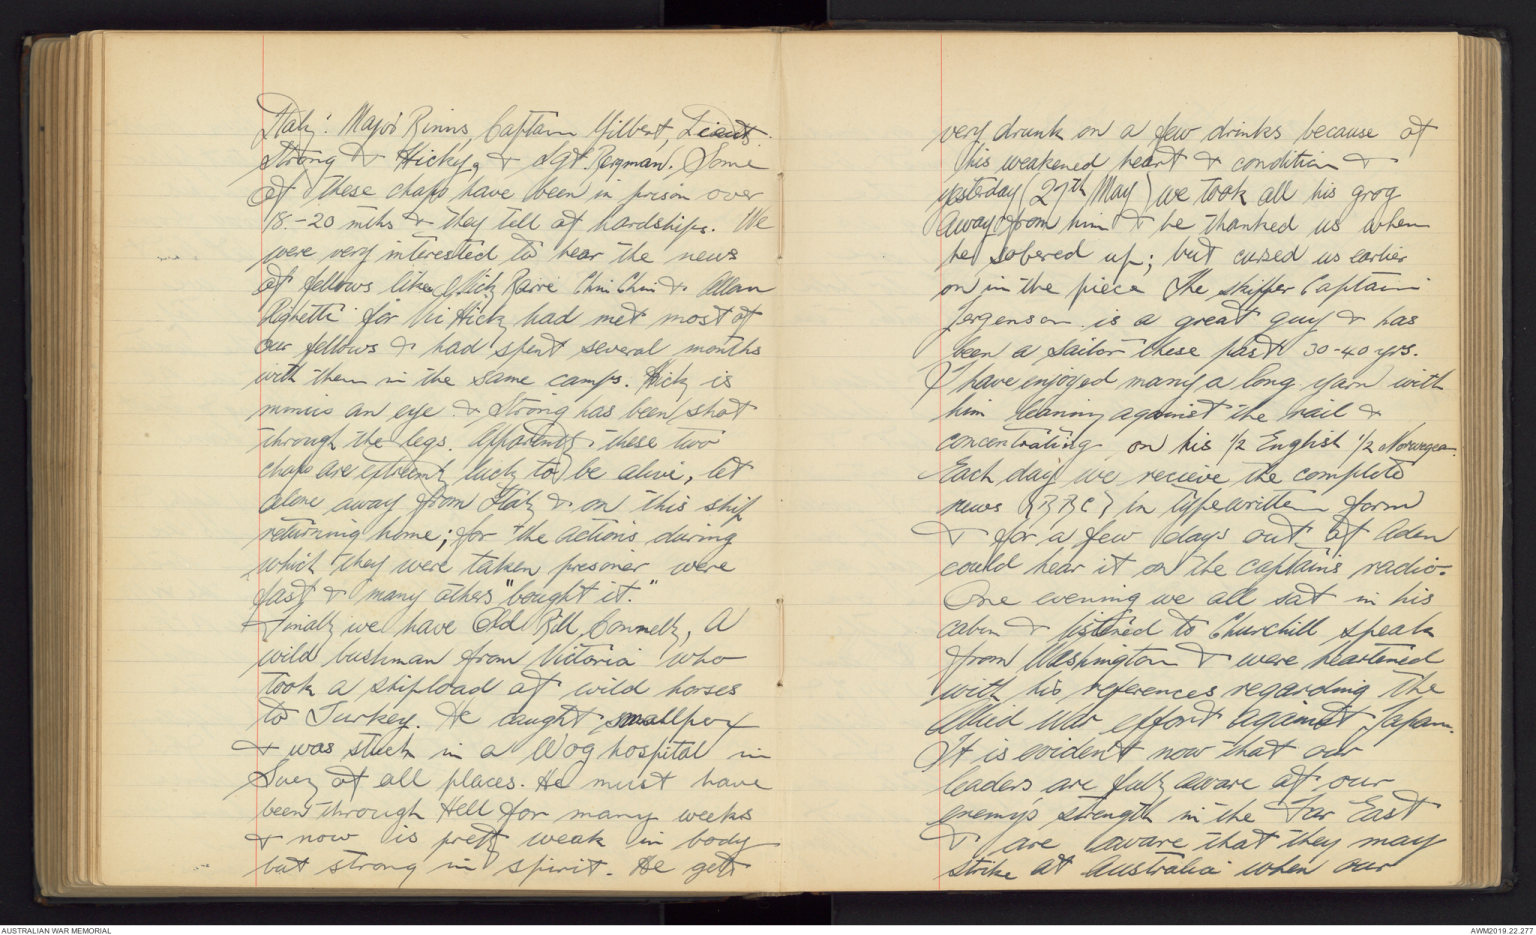 Italy: Major Binns, Captain Gilbert, Lieuts.
Strong & Hicky, & Sgt. Bergman. Some
of these chaps have been in prison over
18.-20 mths & they tell of hardships. We
were very interested to hear the news
of fellows like Mick Chin Chin & Allan
Righetti for Hick had met most of
our fellows & had spent several months
with them in the same camps. Hick is
minus an eye & Strong has been shot
through the legs. Apparently these two
chaps are extremely lucky to be alive, let
alone away from Italy & on this ship
returning home; for the actions during
which they were taken prisoner were
fast & many others "bought it."
Finally we have Old Bill Connelly, A
wild bushman from Victoria who
took a shipload of wild horses
to Turkey. He caught smallpox
& was stuck in a Wog hospital in
Suez of all places. He must have
been through Hell for many weeks
& now is pretty weak in body
but strong in spirit. He gets
very drunk on a few drinks because of
his weakened heart & condition &
yesterday (27th May) we took all his grog
away from him & he thanked us when
he sobered up; but cursed us earlier
on in the piece The skipper Captain
Jergenson is a great guy & has
been a sailor these past 30-40 yrs.
I have enjoyed many a long yarn with
him leaning against the rail &
concentrating on his 1/2 English 1/2 Norwegean.
Each day we recieve the complete
news (BBC) in typewritten form
& for a few days out of Aden
could hear it on the captain's radio.
One evening we all sat in his
cabin & listened to Churchill speak
from Washington & were heartened
with his references regarding the
Allied War effort against Japan.
It is evident now that our
leaders are fully aware of our
enemy's strength in the Far East
& are aware that they may
strike at Australia when our
AUSTRALIAN WAR MEMORIAL
AWM2019.22.277